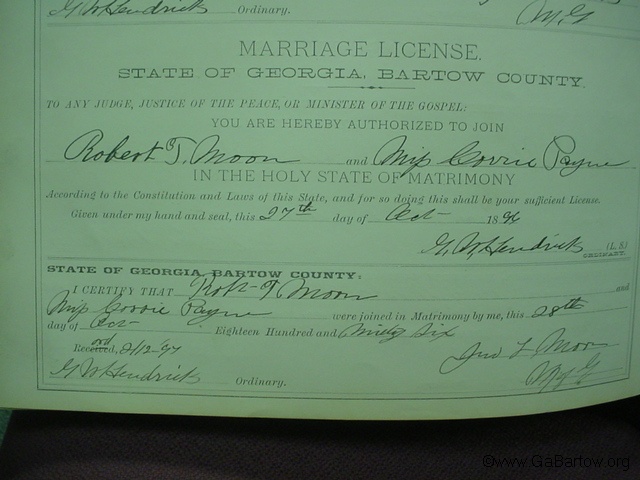 G W Hendricks Ordinary. M. G
MARRIAGE LICENSE.
STATE OF GEORGIA, BARTOW COUNTY.
TO ANY JUDGE, JUSTICE OF THE PEACE, OR MINISTER OF THE GOSPEL:
YOU ARE HEREBY AUTHORIZED TO JOIN
Robert T. Moon and Miss Corrie Payne
IN THE HOLY STATE OF MATRIMONY
According to the Constitution and Laws of this State, and for so doing this shall be your sufficient License.
Given under my hand and seal, this 27th day of Oct 1896
G. W. Hendricks (L. S.)
ORDINARY.
STATE OF GEORGIA, BARTOW COUNTY:
I CERTIFY THAT Robt T. Moon and
Miss Corrie Payne were joined in Matrimony by me, this 28th
day of Oct Eighteen Hundred and Ninety Six
Jno L Moon
M. G
G W Hendricks Ordinary.
©www.GaBartow.org